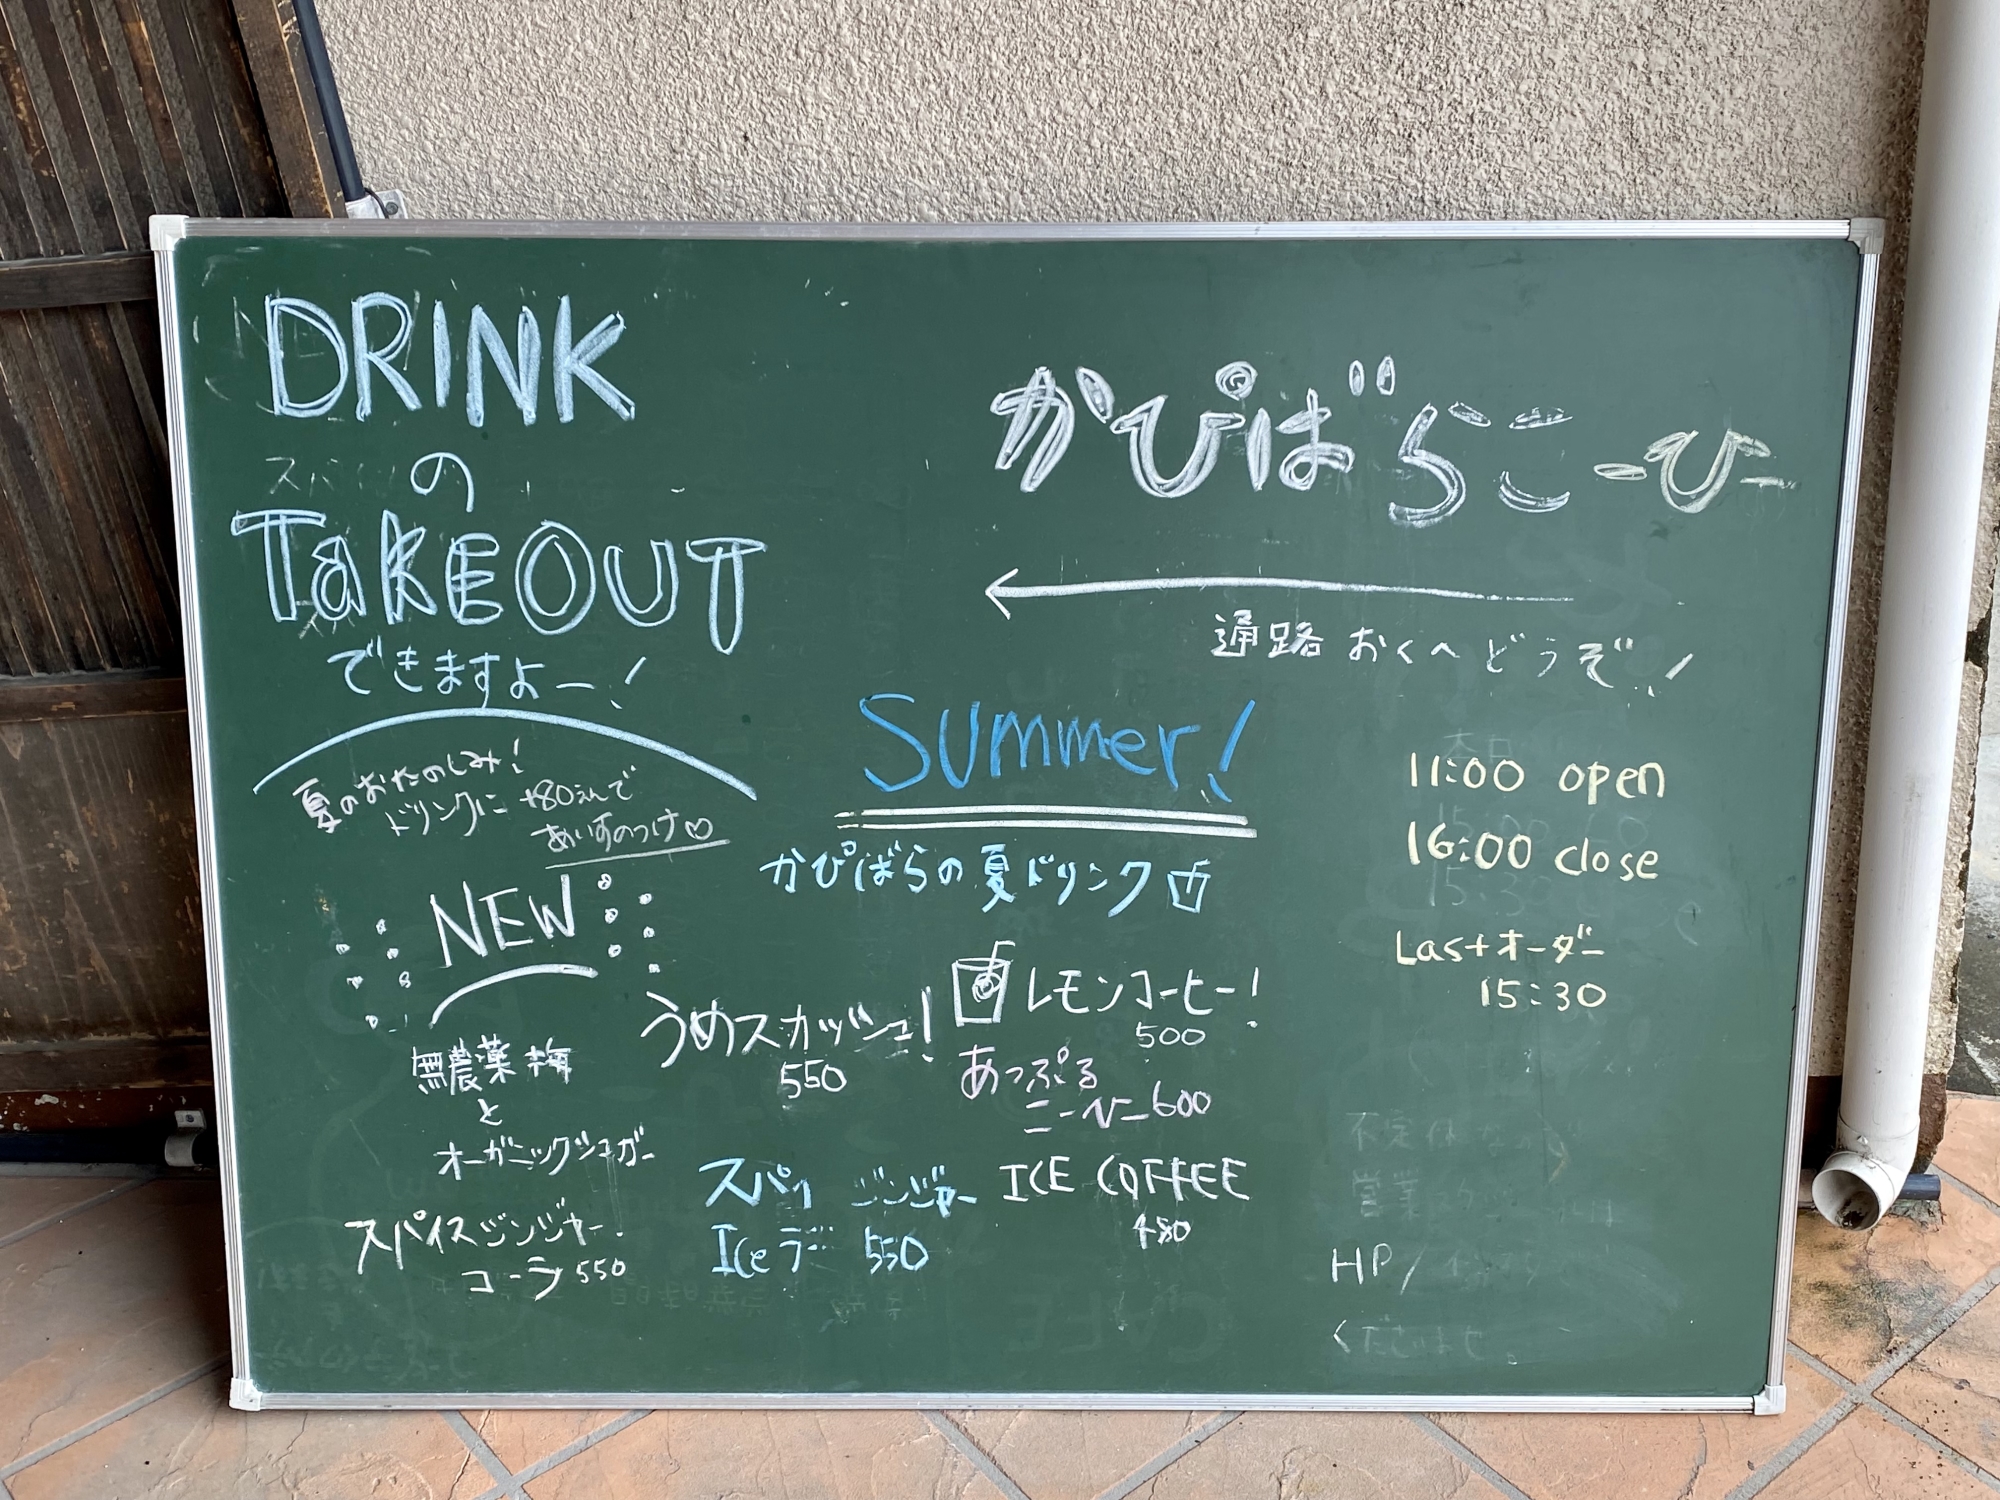 DRINK
の
TaKEOUT
できますよー!
夏のおたのしみ!
ドリンクに +80えんで
あいすのっけ♡
NEW
無農薬梅
と
オーガニックシュガー
スパイスジンジャー
コーラ 550
かぴばらこーひー
←
通路 おくへ どうぞ!
Summer!
かぴばらの夏ドリンク
うめスカッシュ!
550
レモンコーヒー!
500
あっぷる
こーひー 600
スパイ ジンジャー
Iceラ 550
ICE COFFEE
480
11:00 open
16:00 close
Lastオーダー
15:30
HP/